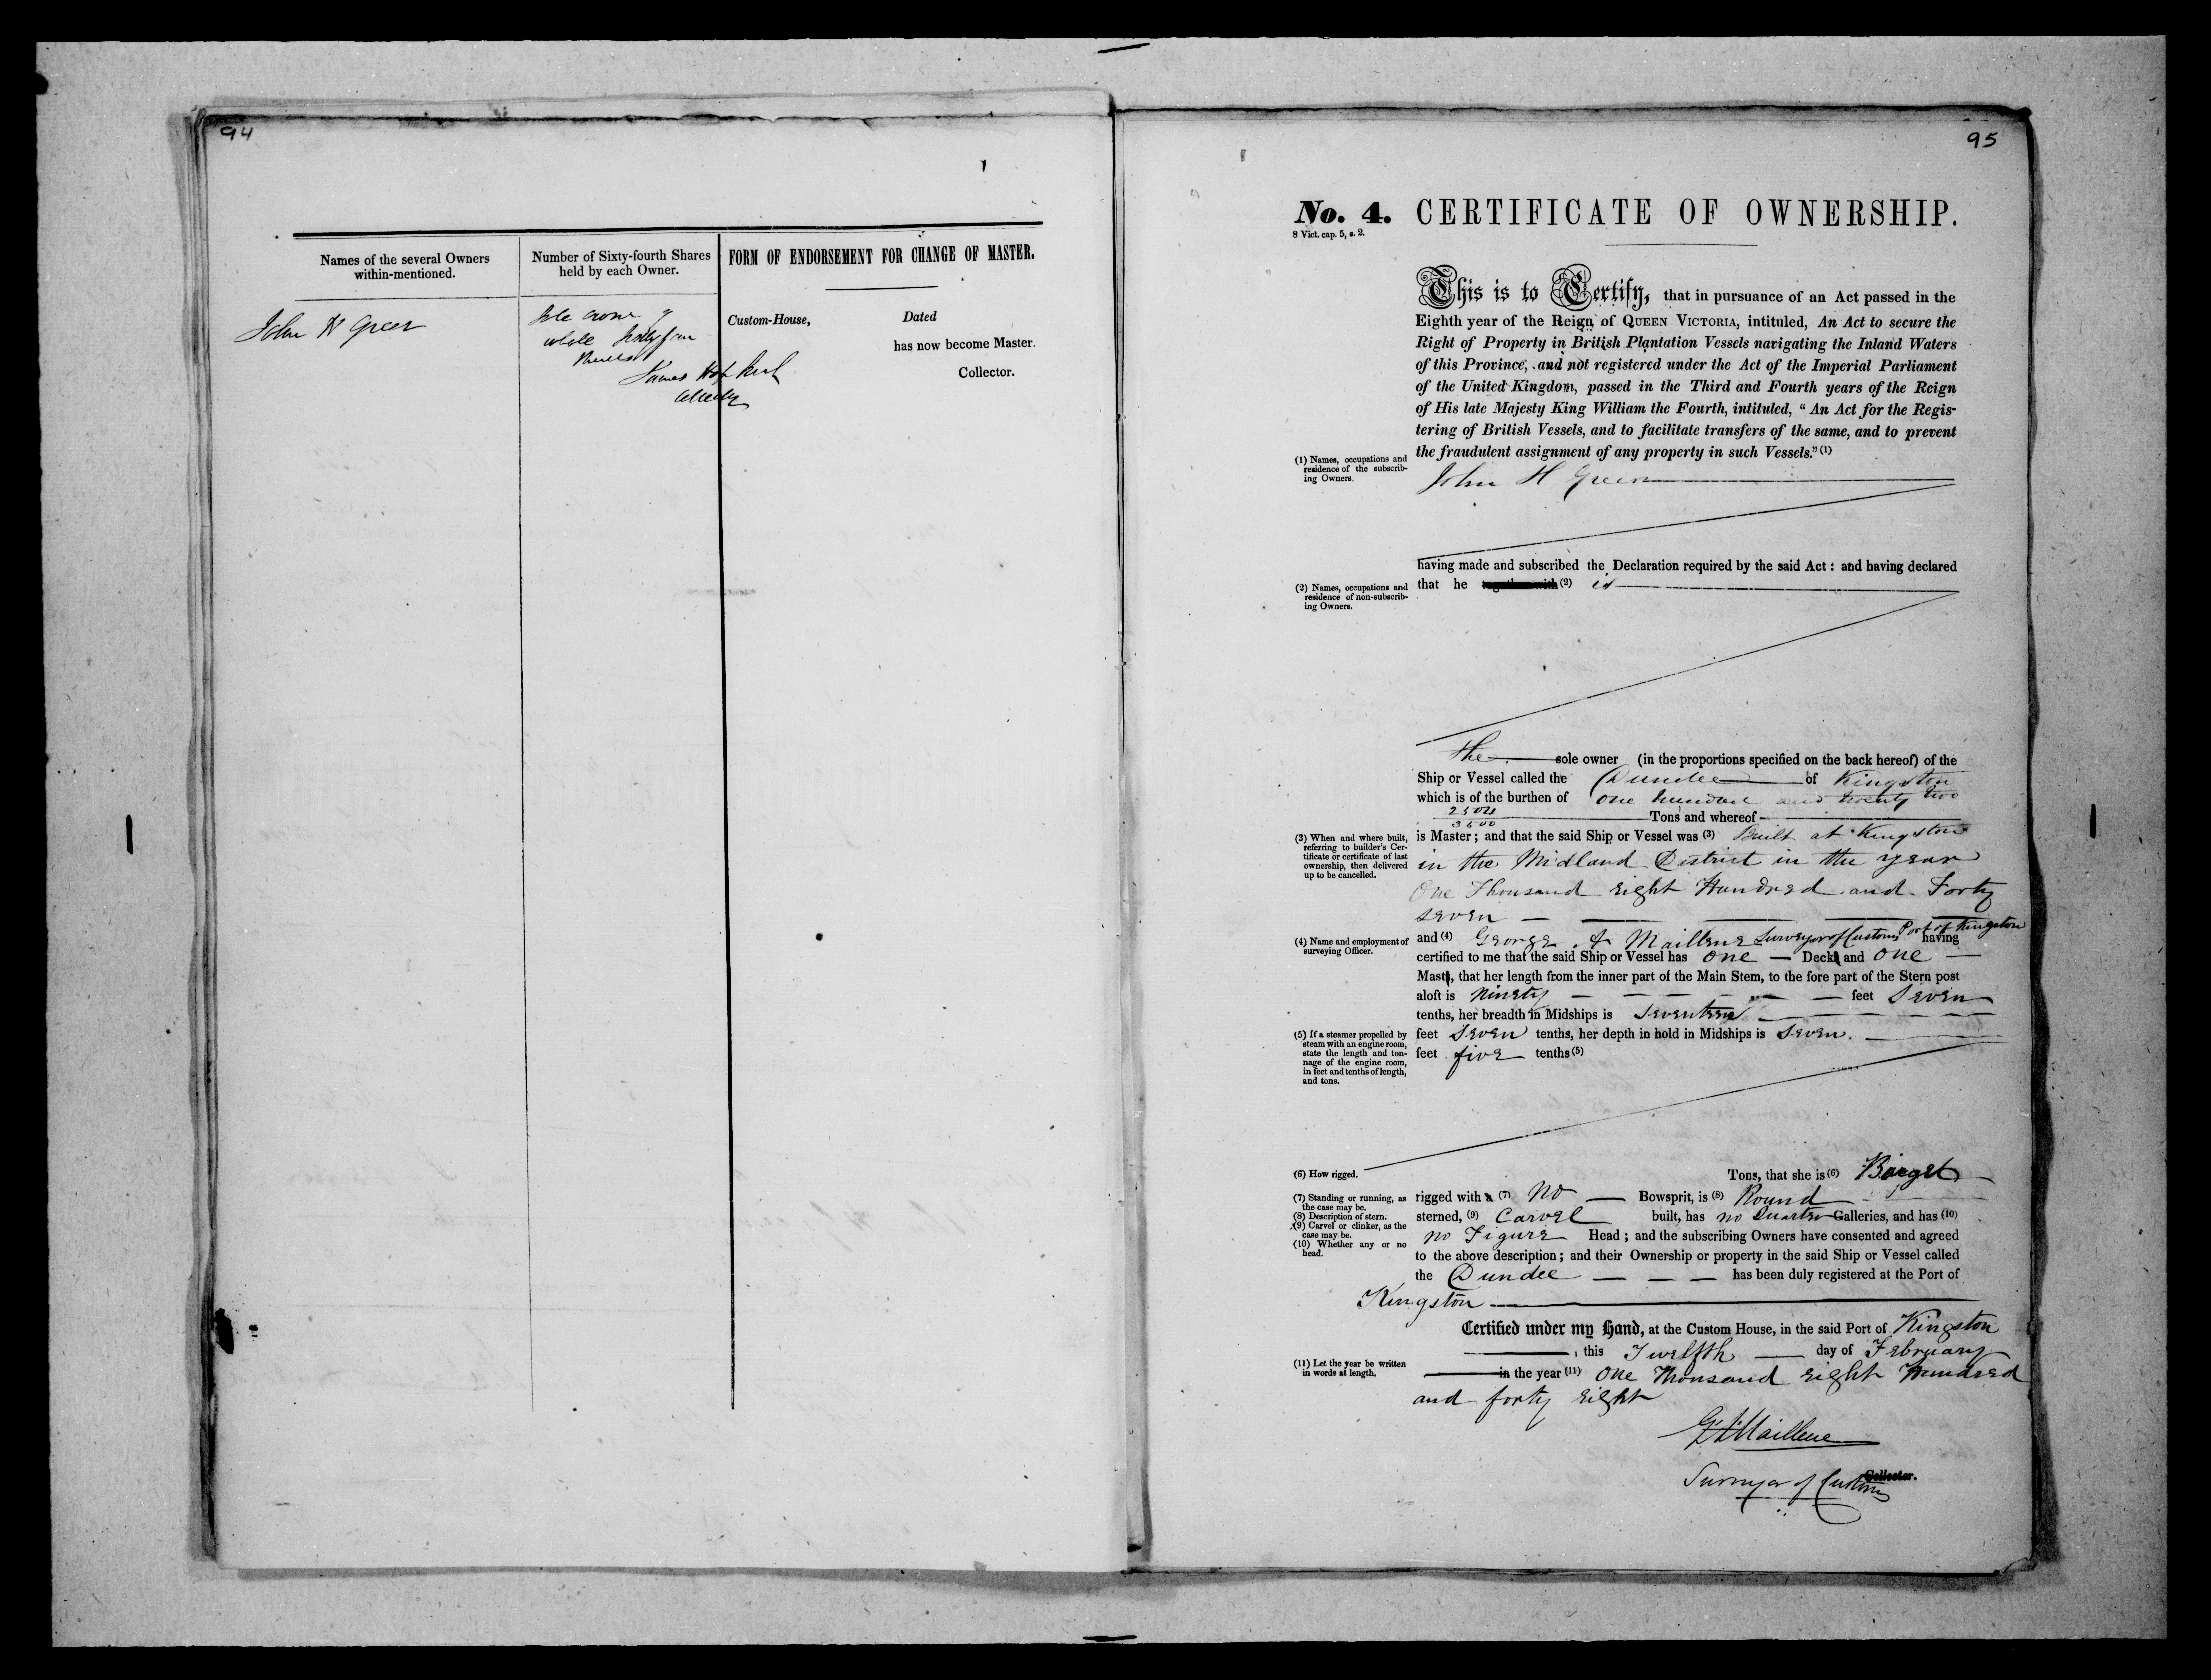 94
Names of the several Owners
within-mentioned.
Number of Sixty-fourth Shares
held by each Owner.
FORM OF ENDORSEMENT FOR CHANGE OF MASTER.
John H Greer
Sole owner of
whole Sixty four
Shares
James Hopkirk
Collector
Custom-House,
Dated
has now become Master.
Collector.
95
No. 4. CERTIFICATE OF OWNERSHIP.
8 Vict. cap. 5, s. 2.
This is to Certify, that in pursuance of an Act passed in the
Eighth year of the Reign of QUEEN VICTORIA, intituled, An Act to secure the
Right of Property in British Plantation Vessels navigating the Inland Waters
of this Province, and not registered under the Act of the Imperial Parliament
of the United Kingdom, passed in the Third and Fourth years of the Reign
of His late Majesty King William the Fourth, intituled, “ An Act for the Regis-
tering of British Vessels, and to facilitate transfers of the same, and to prevent
the fraudulent assignment of any property in such Vessels.” (1)
(1) Names, occupations and
residence of the subscrib-
ing Owners.
John H Greer
having made and subscribed the Declaration required by the said Act : and having declared
that he together with (2) is
(2) Names, occupations and
residence of non-subscrib-
ing Owners.
the sole owner (in the proportions specified on the back hereof) of the
Ship or Vessel called the Dundee of Kingston
which is of the burthen of One hundred and twenty two
2504
3500 Tons and whereof
(3) When and where built,
referring to builder's Cer-
tificate or certificate of last
ownership, then delivered
up to be cancelled.
is Master ; and that the said Ship or Vessel was (3) Built at Kingston
in the Midland District in the year
One Thousand Eight Hundred and Forty
Seven
(4) Name and employment of
surveying Officer.
and (4) George A Maillene Surveyor of Customs Port of Kingston having
certified to me that the said Ship or Vessel has One Deck and One
Mast, that her length from the inner part of the Main Stem, to the fore part of the Stern post
aloft is Ninety feet Seven
tenths, her breadth in Midships is Seventeen
feet Seven tenths, her depth in hold in Midships is Seven.
feet five tenths (5)
(5) If a steamer propelled by
steam with an engine room,
state the length and ton-
nage of the engine room,
in feet and tenths of length,
and tons.
(6) How rigged.
Tons, that she is (6) Barge
(7) Standing or running, as
the case may be.
(8) Description of stern.
(9) Carvel or clinker, as the
case may be.
(10) Whether any or no
head.
rigged with a (7) No Bowsprit, is (8) Round
sterned, (9) Carvel built, has no Quarter Galleries, and has (10)
no Figure Head ; and the subscribing Owners have consented and agreed
to the above description ; and their Ownership or property in the said Ship or Vessel called
the Dundee has been duly registered at the Port of
Kingston
Certified under my Hand, at the Custom House, in the said Port of Kingston
, this Twelfth day of February
(11) Let the year be written
in words at length.
in the year (11) One Thousand Eight Hundred
and forty Eight
G A Maillene
Collector.
Surveyor of Customs